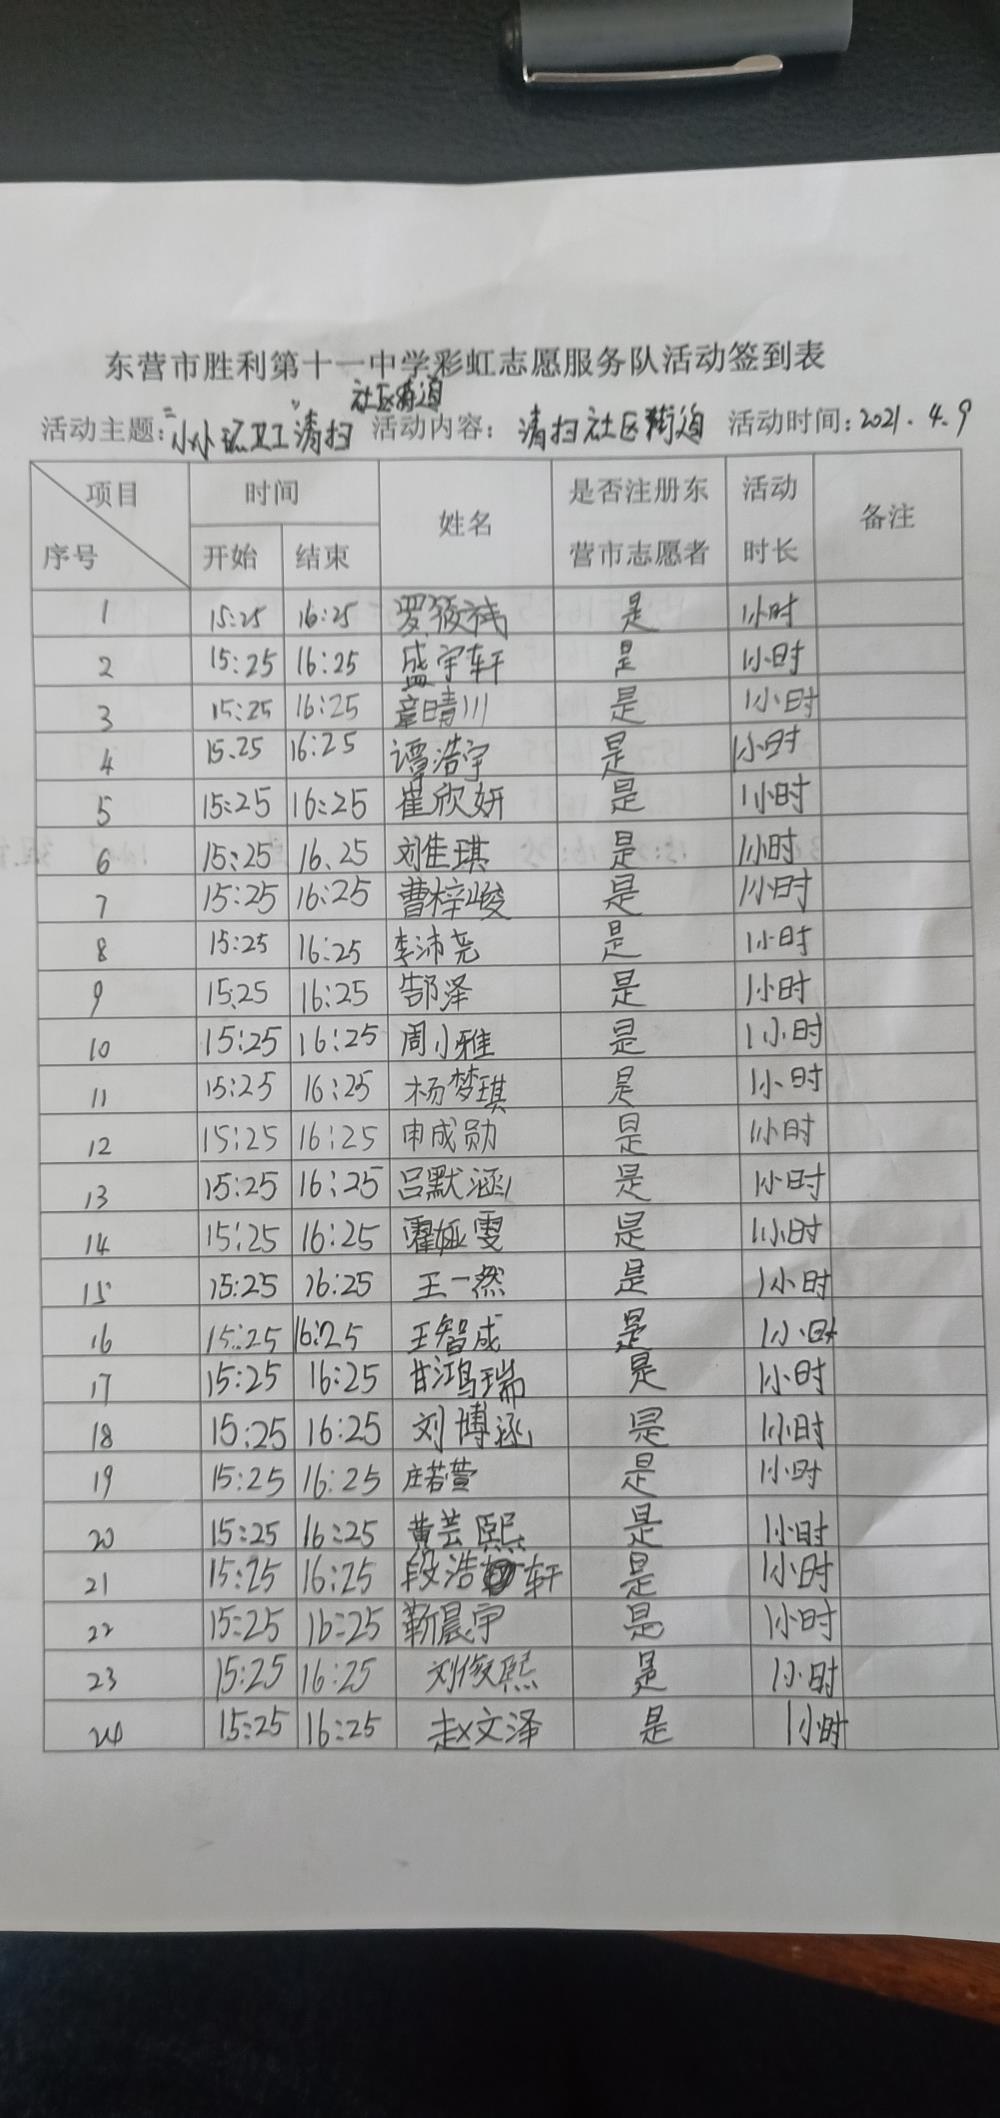 东营市胜利第十一中学彩虹志愿服务队活动签到表
社区街道
活动主题:“小小环卫工”清扫 活动内容: 清扫社区街道 活动时间:2021.4.9
项目 时间 姓名 是否注册东 活动 备注
序号 开始 结束 营市志愿者 时长
1 15:25 16:25 罗筱 是 1小时
2 15:25 16:25 盛宇轩 是 1小时
3 15:25 16:25 章晴川 是 1小时
4 15.25 16:25 谭浩宇 是 1小时
5 15:25 16:25 崔欣妍 是 1小时
6 15:25 16.25 刘佳琪 是 1小时
7 15:25 16:25 曹梓峻 是 1小时
8 15:25 16:25 李沛尧 是 1小时
9 15:25 16:25 郜泽 是 1小时
10 15:25 16:25 周小雅 是 1小时
11 15:25 16:25 杨梦琪 是 1小时
12 15:25 16:25 申成勋 是 1小时
13 15:25 16:25 吕默涵 是 1小时
14 15:25 16:25 霍娅雯 是 1小时
15 15:25 16:25 王一然 是 1小时
16 15:25 16:25 王智成 是 1小时
17 15:25 16:25 甘鸿瑞 是 1小时
18 15:25 16:25 刘博涵 是 1小时
19 15:25 16:25 庄若萱 是 1小时
20 15:25 16:25 黄芸熙 是 1小时
21 15:25 16:25 段浩轩 是 1小时
22 15:25 16:25 靳晨宇 是 1小时
23 15:25 16:25 刘俊熙 是 1小时
24 15:25 16:25 赵文泽 是 1小时